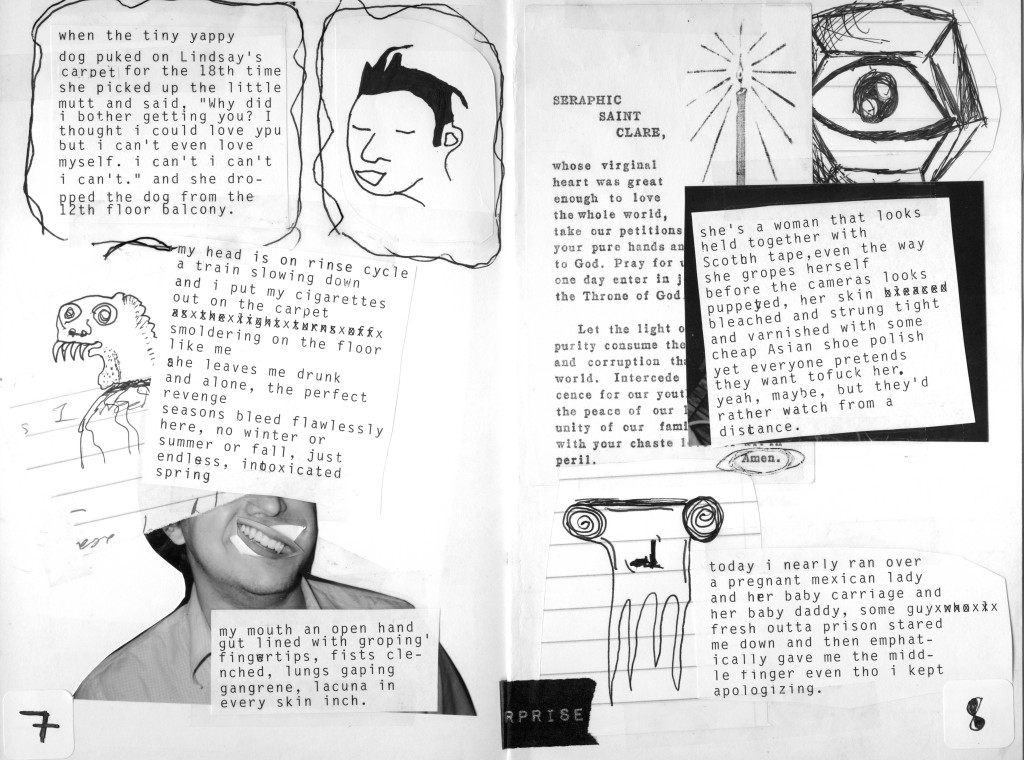 when the tiny yappy
dog puked on Lindsay's
carpet for the 18th time
she picked up the little
mutt and said, "Why did
i bother getting you? I
thought i could love ypu
but i can't even love
myself. i can't i can't
i can't." and she dro-
pped the dog from the
12th floor balcony.
my head is on rinse cycle
a train slowing down
and i put my cigarettes
out on the carpet
as the light turns off
smoldering on the floor
like me
she leaves me drunk
and alone, the perfect
revenge
seasons bleed flawlessly
here, no winter or
summer or fall, just
endless, intoxicated
spring
s I
my mouth an open hand
gut lined with groping'
fingertips, fists cle-
nched, lungs gaping
gangrene, lacuna in
every skin inch.
7
SERAPHIC
SAINT
CLARE,
whose virginal
heart was great
enough to love
the whole world,
take our petitions
your pure hands an
to God. Pray for
one day enter in
the Throne of God.
Let the light o
purity consume the
and corruption tha
world. Intercede
cence for our yout
the peace of our
unity of our fami
with your chaste
peril.
Amen.
she's a woman that looks
held together with
Scotbh tape,even the way
she gropes herself
before the cameras looks
puppeyed, her skin bleaced
bleached and strung tight
and varnished with some
cheap Asian shoe polish
yet everyone pretends
they want tofuck her.
yeah, maybe, but they'd
rather watch from a
distance.
today i nearly ran over
a pregnant mexican lady
and her baby carriage and
her baby daddy, some guyxwhoxlx
fresh outta prison stared
me down and then emphat-
ically gave me the midd-
le finger even tho i kept
apologizing.
RPRISE
8